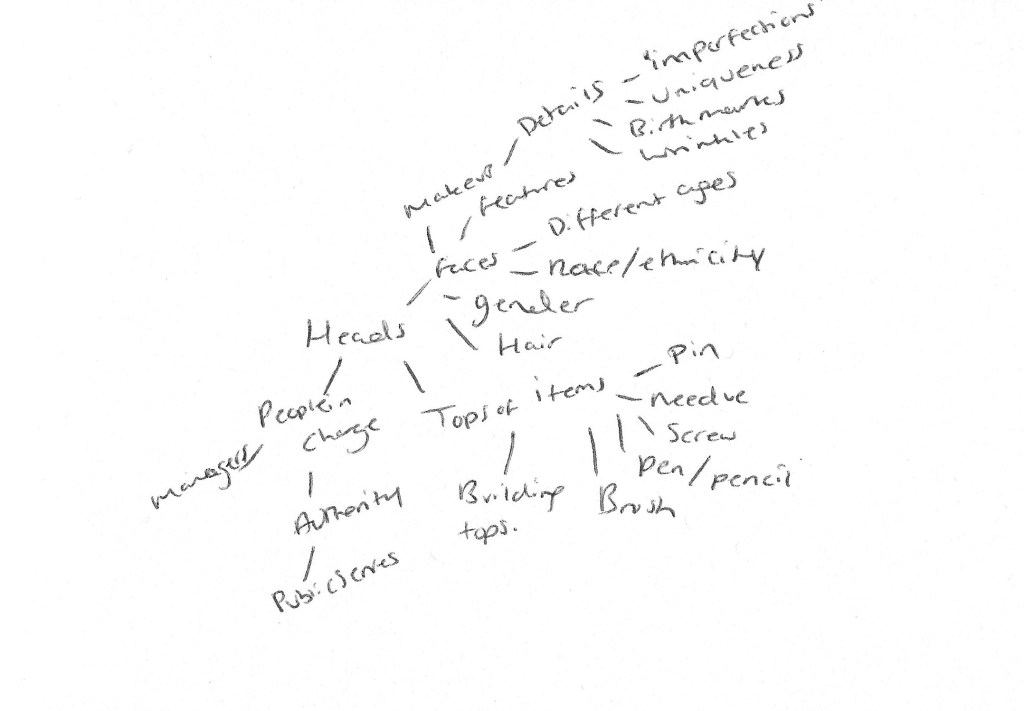 "imperfections"
Details
uniqueness
Birthmarks
wrinkles
features
Different ages
faces
Race/ethnicity
gender
Heads
Hair
Pin
People in
charge
Tops of items
needle
Screw
managers
Pen/pencil
Authority
Building
tops.
Brush